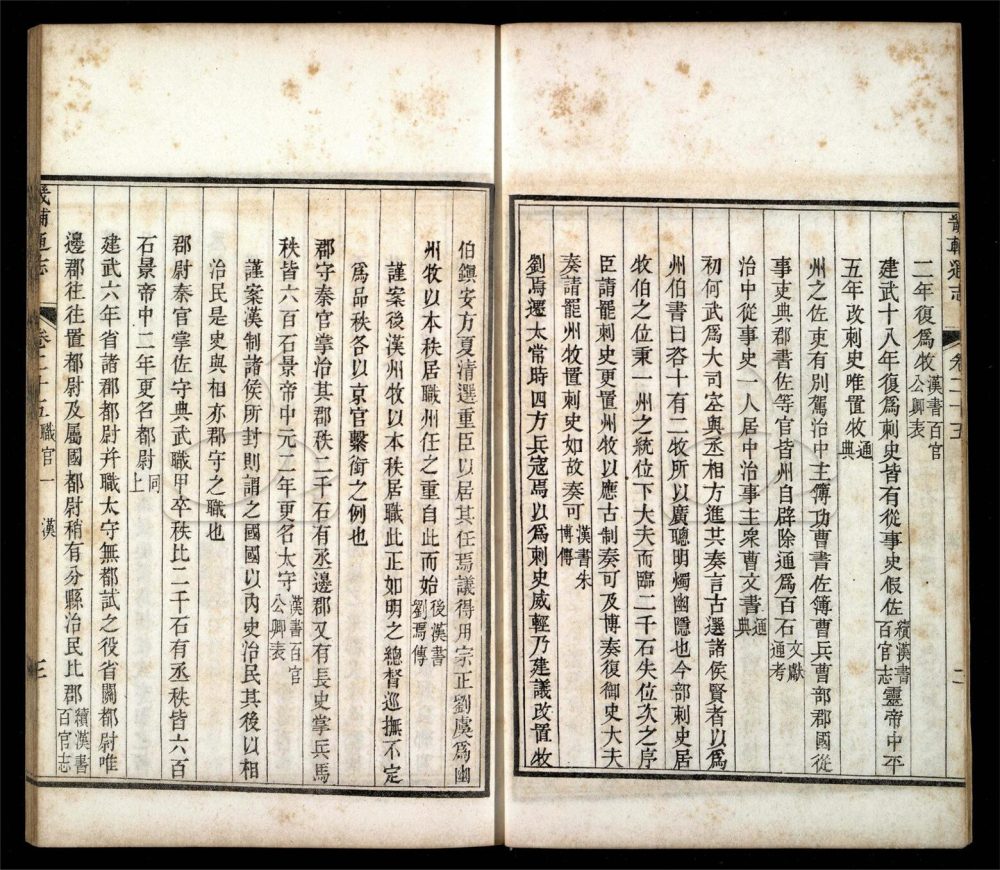 畿輔通志 卷二十五 二
二年復爲牧漢書百官公卿表
建武十八年復爲刺史皆有從事史假佐續漢書百官志靈帝中平
五年改刺史唯置牧通典
州之佐吏有別駕治中主簿功曹書佐簿曹兵曹部郡國從
事吏典郡書佐等官皆州自辟除通爲百石文獻通考
治中從事史一人居中治事主衆曹文書通典
初何武爲大司空與丞相方進共奏言古選諸侯賢者以爲
州伯書曰咨十有二牧所以廣聰明燭幽隱也今部刺史居
牧伯之位秉一州之統位下大夫而臨二千石失位次之序
臣請罷刺史更置州牧以應古制奏可及博奏復御史大夫
奏請罷州牧置刺史如故奏可漢書朱博傳
劉焉遷太常時四方兵寇焉以爲刺史威輕乃建議改置牧
伯鎭安方夏清選重臣以居其任焉議得用宗正劉虞爲幽
州牧以本秩居職州任之重自此而始後漢書劉焉傳
謹案後漢州牧以本秩居職此正如明之總督巡撫不定
爲品秩各以京官繫銜之例也
郡守秦官掌治其郡秩二千石有丞邊郡又有長史掌兵馬
秩皆六百石景帝中元二年更名太守漢書百官公卿表
謹案漢制諸侯所封則謂之國國以內史治民其後以相
治民是史與相亦郡守之職也
郡尉秦官掌佐守典武職甲卒秩比二千石有丞秩皆六百
石景帝中二年更名都尉同上
建武六年省諸郡都尉幷職太守無都試之役省關都尉唯
邊郡往往置都尉及屬國都尉稍有分縣治民比郡續漢書百官志
畿輔通志 卷二十五 職官一 漢 三